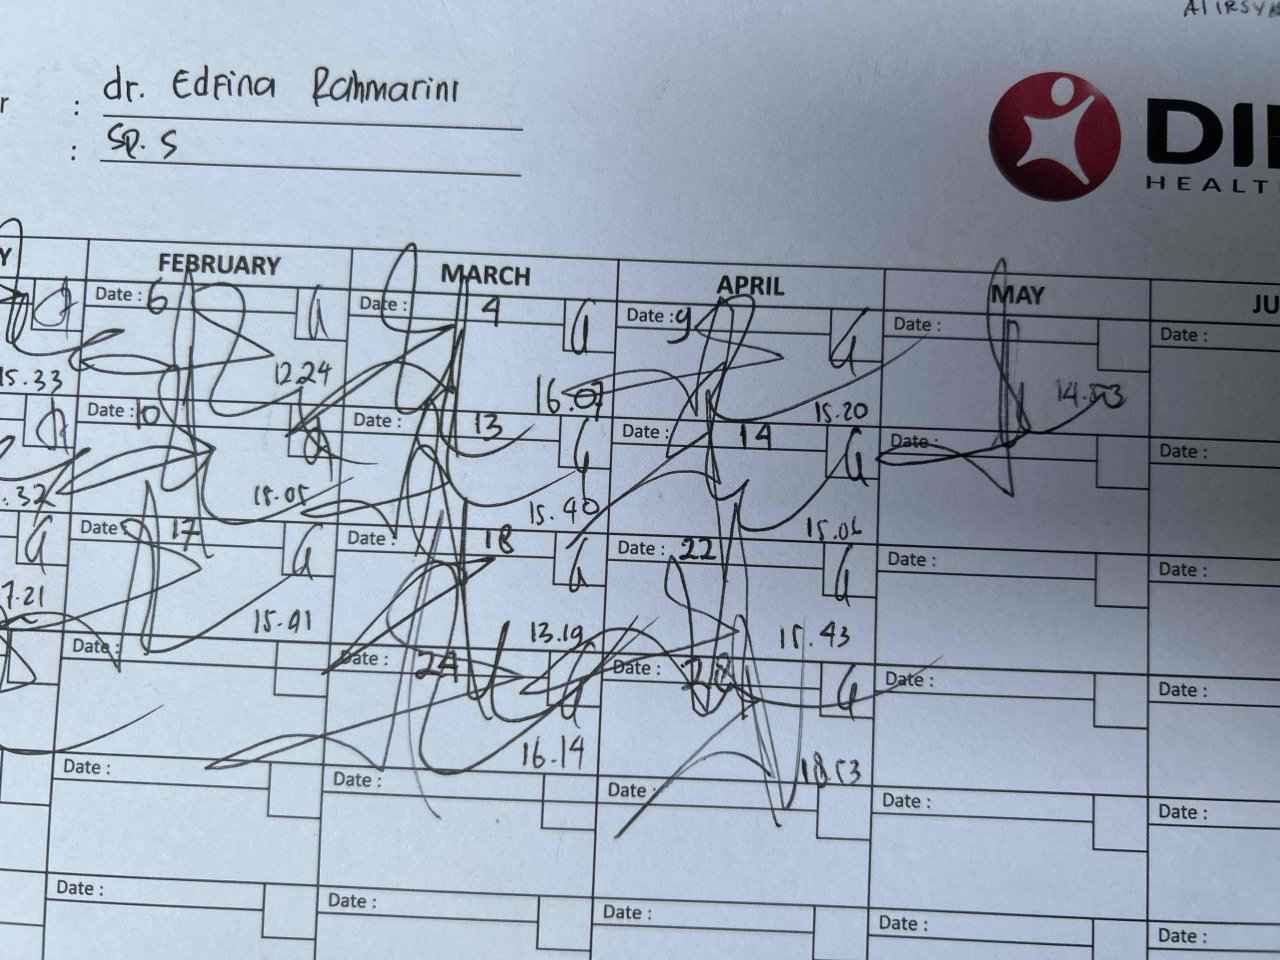 dr. Edfina Rahmarini
Sp. S
HEALT
FEBRUARY MARCH APRIL MAY JU
Date : 6 Date : 4 Date : 9 Date : Date :
15.33 12.24 16.07 15.20 14.53
Date : 10 Date : 13 Date : 14 Date : Date :
15.40 15.06
Date : 17 Date : 18 Date : 22 Date : Date :
7.21 13.19 15.43
Date : Date : 24 Date : 28 Date : Date :
16.14 18.53
Date : Date : Date : Date : Date :
Date : Date : Date : Date : Date :